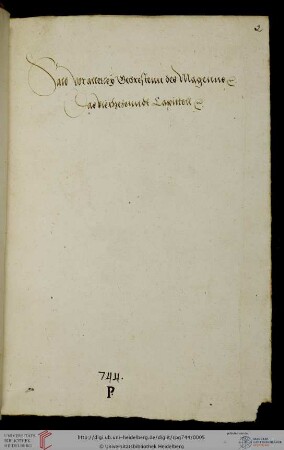 2
Sale vor allerley Gebresten des Magenns
das vierzehennde Capittell
744.
P
UNIVERSITÄTS-
BIBLIOTHEK
HEIDELBERG
http://digi.ub.uni-heidelberg.de/diglit/cpg744/0005
© Universitätsbibliothek Heidelberg